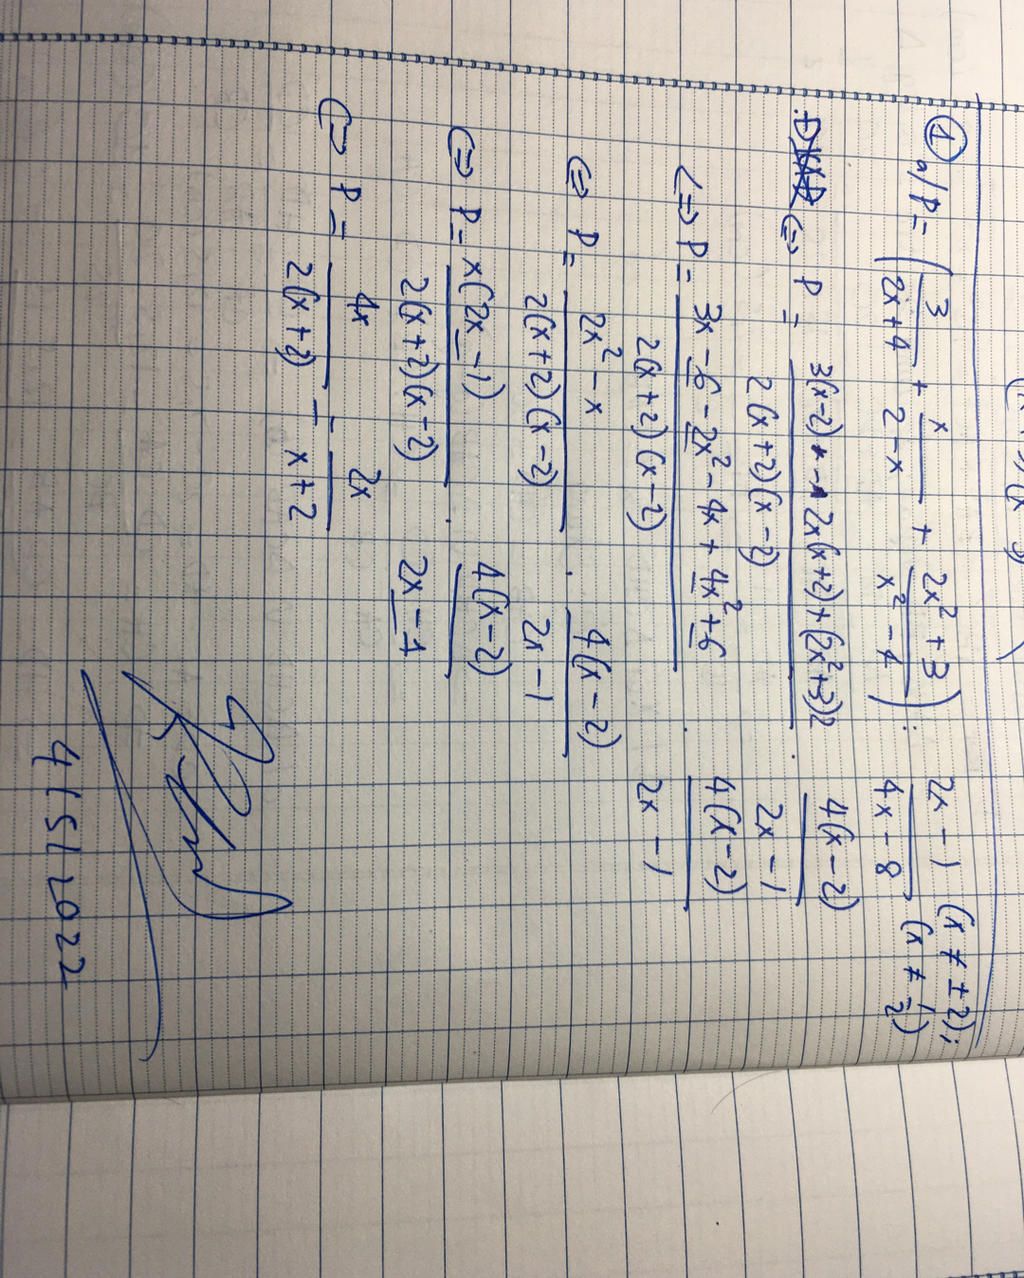 ① a/ P = (3/(2x+4) + x/(2-x) + (2x²+3)/(x²-4)) : (2x-1)/(4x-8) (x ≠ ±2); (x ≠ 1/2)
<=> P = (3(x-2) - 2x(x+2) + (2x²+3)2)/(2(x+2)(x-2)) . 4(x-2)/(2x-1)
<=> P = (3x-6-2x²-4x+4x²+6)/(2(x+2)(x-2)) . 4(x-2)/(2x-1)
<=> P = (2x²-x)/(2(x+2)(x-2)) . 4(x-2)/(2x-1)
<=> P = x(2x-1)/(2(x+2)(x-2)) . 4(x-2)/(2x-1)
<=> P = 4x/(2(x+2)) = 2x/(x+2)
4/5/2022